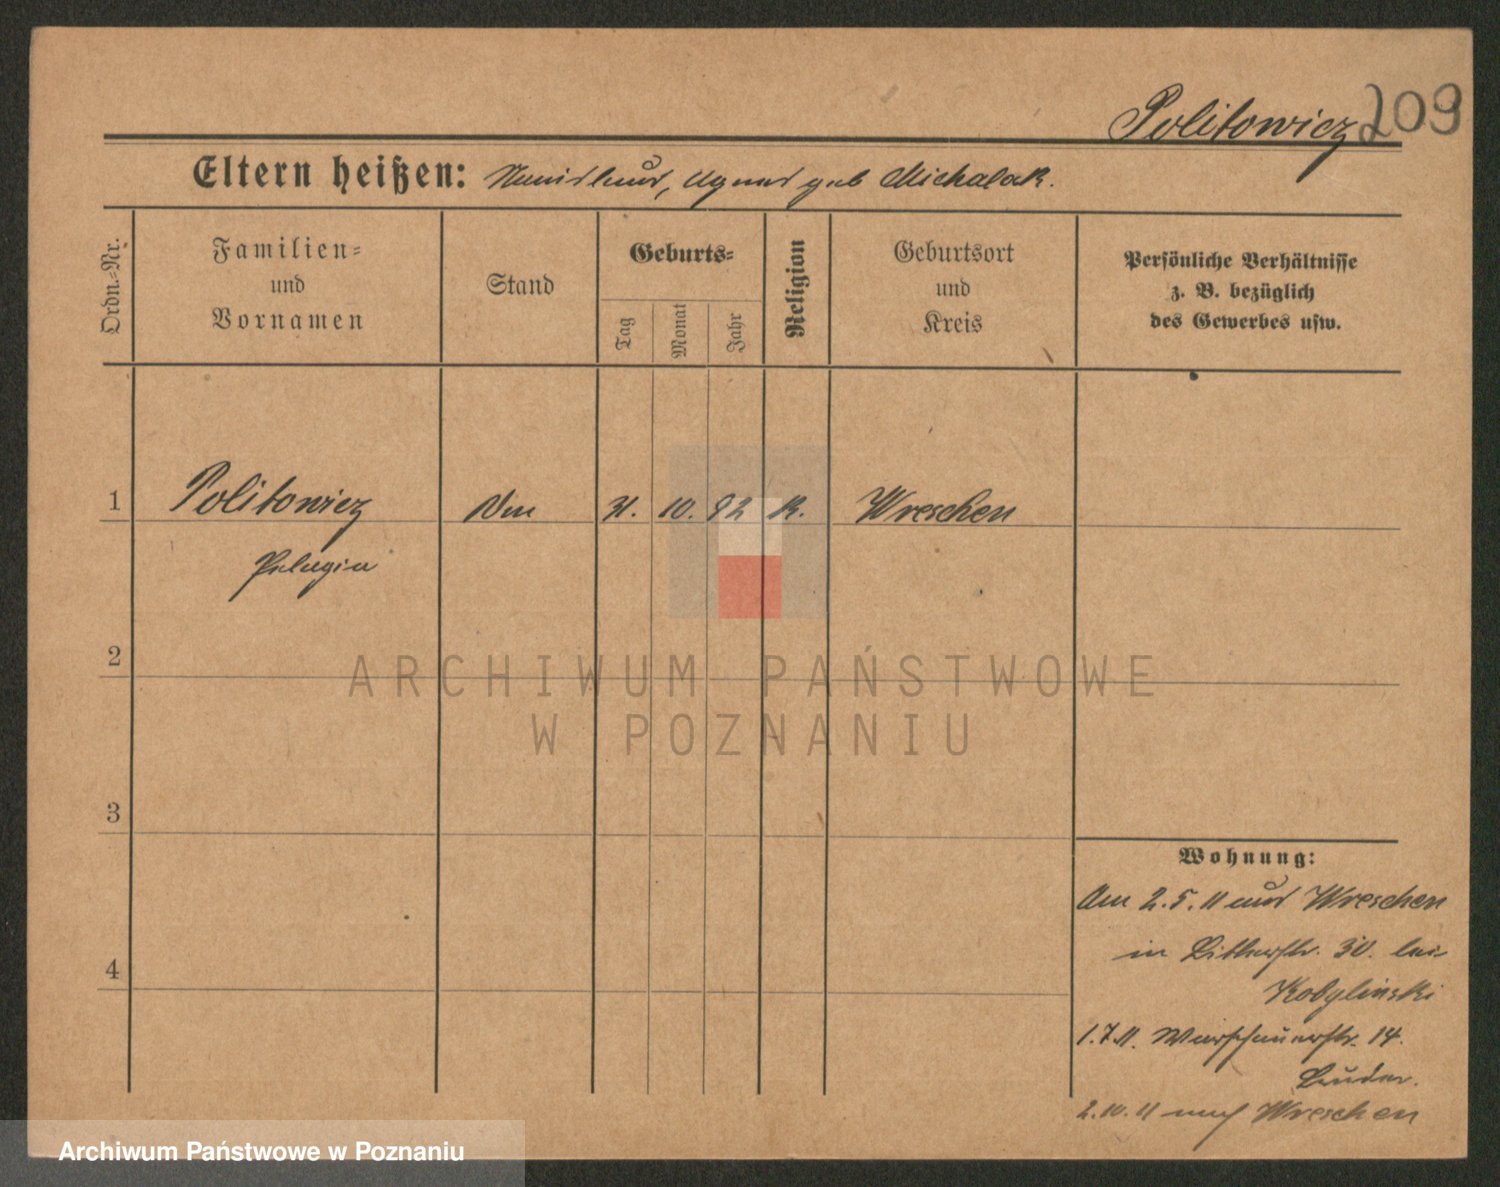 Politowicz 209
Eltern heißen: Stanislaus, Agnes geb Michalak.
Ordn.-Nr.
Familien-
und
Vornamen
Stand
Geburts-
Tag
Monat
Jahr
Religion
Geburtsort
und
Kreis
Persönliche Verhältnisse
z. B. bezüglich
des Gewerbes usw.
1 Politowicz 10. 92 K. Wreschen
Pelagia
2
3
4
Wohnung:
Am 2.5.11 aus Wreschen
in 30. bei
Kobylinski
1.7.11. Warschauerstr. 14.
2.10.11 nach Wreschen
ARCHIWUM PAŃSTWOWE
W POZNANIU
Archiwum Państwowe w Poznaniu